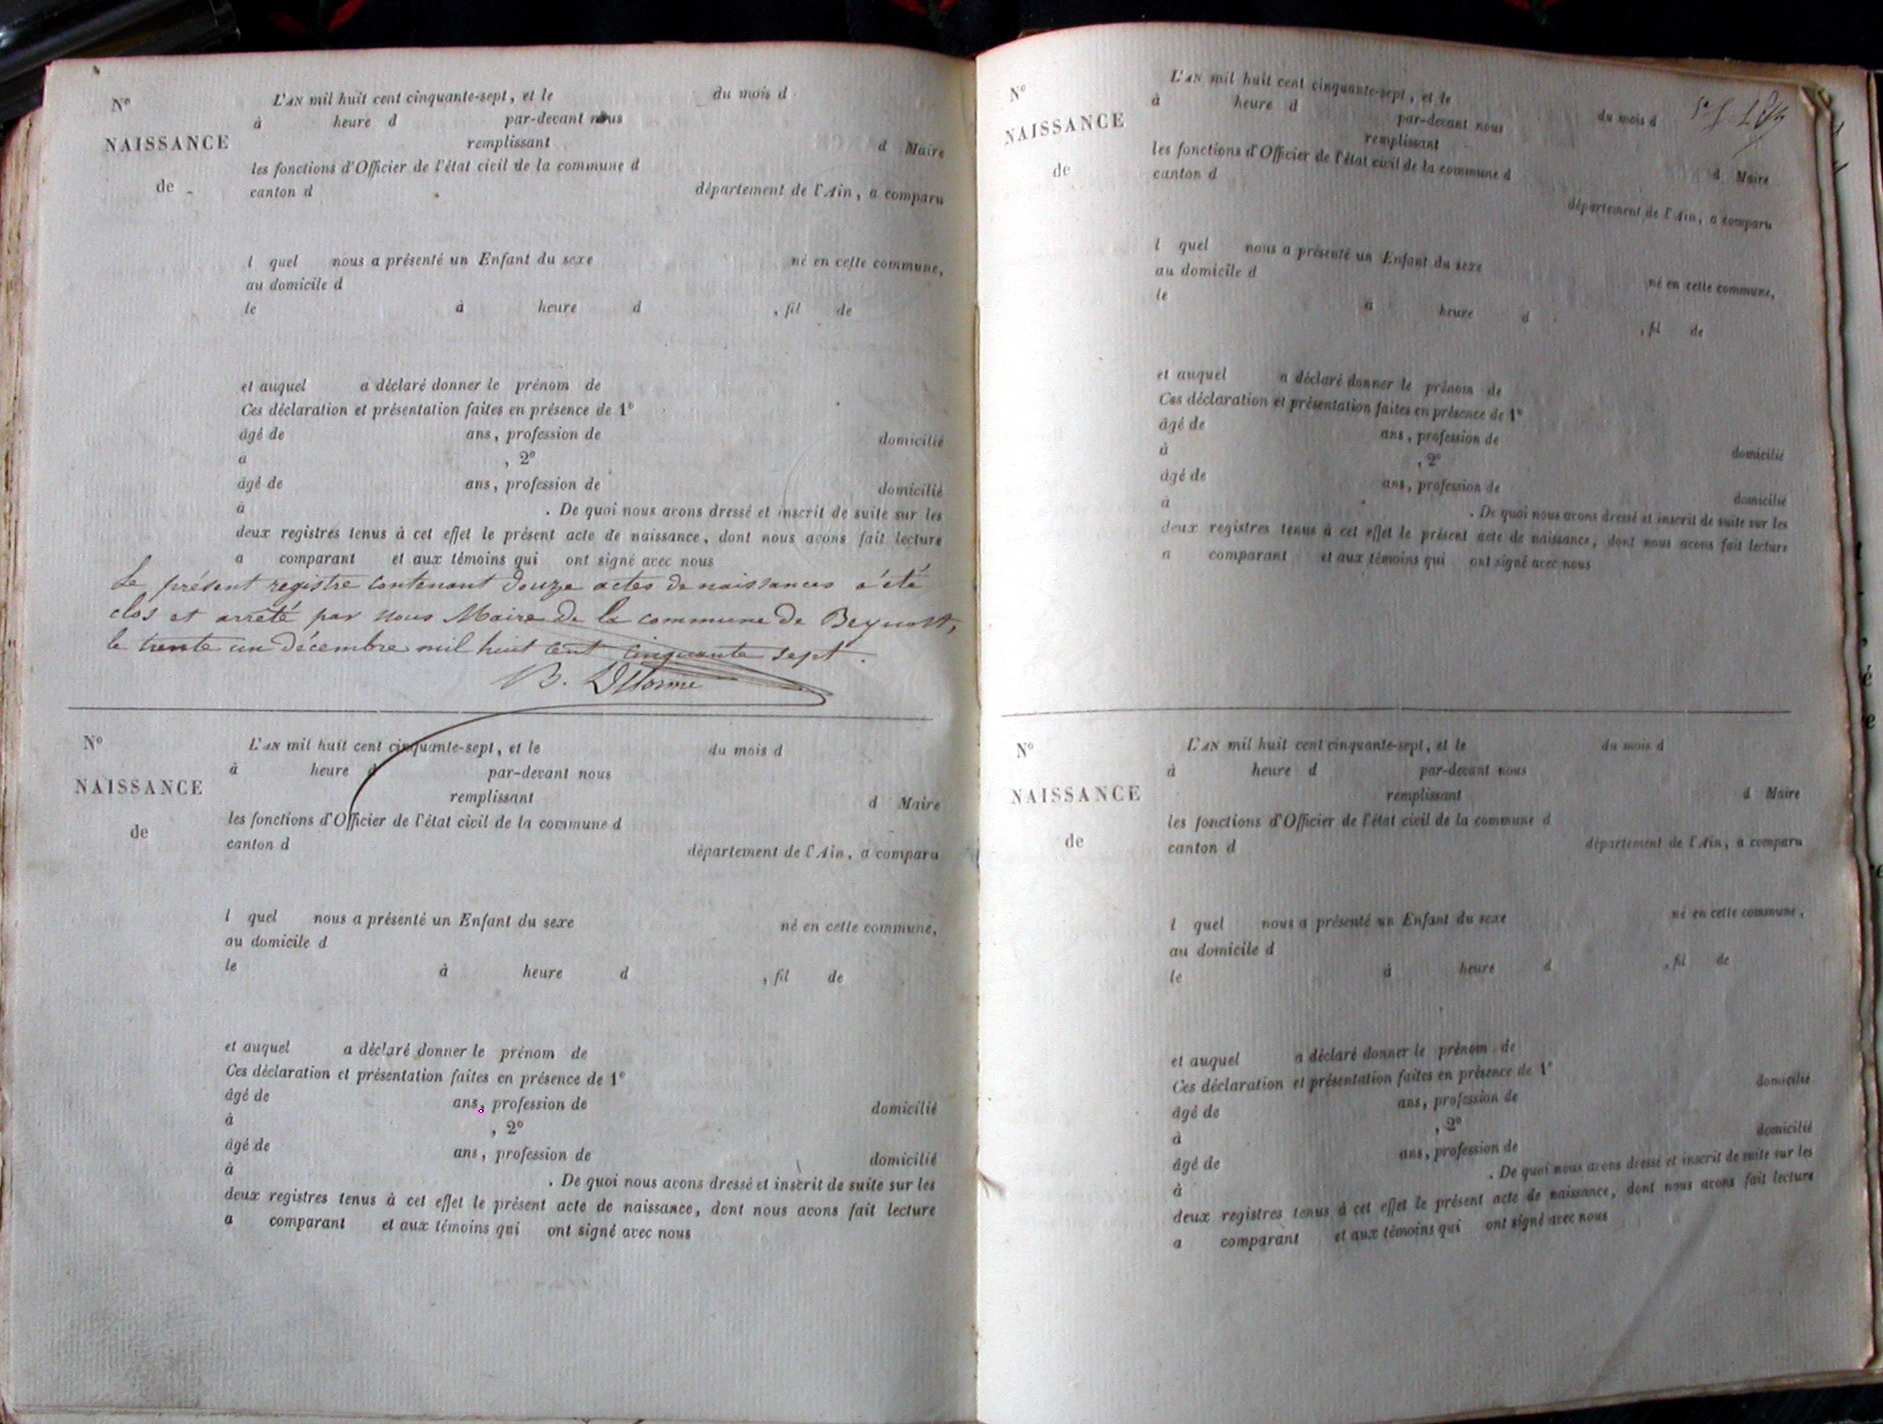 N° L'AN mil huit cent cinquante-sept, et le du mois d
à heure d par-devant nous
NAISSANCE remplissant d Maire
les fonctions d'Officier de l'état civil de la commune d
de canton d département de l'Ain, a comparu
l quel nous a présenté un Enfant du sexe né en cette commune,
au domicile d
le à heure d , fil de
et auquel a déclaré donner le prénom de
Ces déclaration et présentation faites en présence de 1°
âgé de ans, profession de domicilié
à , 2°
âgé de ans, profession de domicilié
à . De quoi nous avons dressé et inscrit de suite sur les
deux registres tenus à cet effet le présent acte de naissance, dont nous avons fait lecture
a comparant et aux témoins qui ont signé avec nous
Le présent registre contenant douze actes de naissances a été
clos et arrêté par nous Maire de la commune de Beynost,
le trente un décembre mil huit cent cinquante sept.
B. Delorme
N° L'AN mil huit cent cinquante-sept, et le du mois d
à heure d par-devant nous
NAISSANCE remplissant d Maire
de les fonctions d'Officier de l'état civil de la commune d
canton d département de l'Ain, a comparu
l quel nous a présenté un Enfant du sexe né en cette commune,
au domicile d
le à heure d , fil de
et auquel a déclaré donner le prénom de
Ces déclaration et présentation faites en présence de 1°
âgé de ans, profession de domicilié
à , 2°
âgé de ans, profession de domicilié
à . De quoi nous avons dressé et inscrit de suite sur les
deux registres tenus à cet effet le présent acte de naissance, dont nous avons fait lecture
a comparant et aux témoins qui ont signé avec nous
N° L'AN mil huit cent cinquante-sept, et le du mois d
à heure d par-devant nous
NAISSANCE remplissant d Maire
les fonctions d'Officier de l'état civil de la commune d
de canton d département de l'Ain, a comparu
l quel nous a présenté un Enfant du sexe né en cette commune,
au domicile d
le à heure d , fil de
et auquel a déclaré donner le prénom de
Ces déclaration et présentation faites en présence de 1°
âgé de ans, profession de domicilié
à , 2°
âgé de ans, profession de domicilié
à . De quoi nous avons dressé et inscrit de suite sur les
deux registres tenus à cet effet le présent acte de naissance, dont nous avons fait lecture
a comparant et aux témoins qui ont signé avec nous
N° L'AN mil huit cent cinquante-sept, et le du mois d
à heure d par-devant nous
NAISSANCE remplissant d Maire
les fonctions d'Officier de l'état civil de la commune d
de canton d département de l'Ain, a comparu
l quel nous a présenté un Enfant du sexe né en cette commune,
au domicile d
le à heure d , fil de
et auquel a déclaré donner le prénom de
Ces déclaration et présentation faites en présence de 1°
âgé de ans, profession de domicilié
à , 2°
âgé de ans, profession de domicilié
à . De quoi nous avons dressé et inscrit de suite sur les
deux registres tenus à cet effet le présent acte de naissance, dont nous avons fait lecture
a comparant et aux témoins qui ont signé avec nous